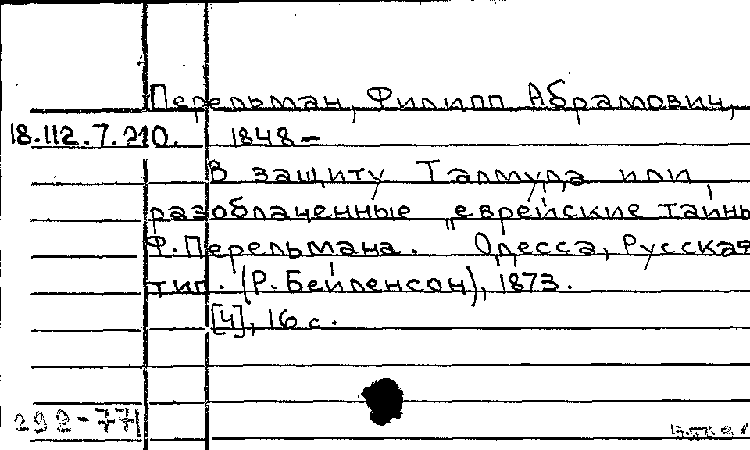 Перельман, Филипп Абрамович,
18.112.7.210. 1848 –
В защиту Талмуда или
разоблаченные „еврейские тайны
Ф. Перельмана. Одесса, Русская
тип. (Р. Бейленсон), 1873.
[4], 16 с.
292-77